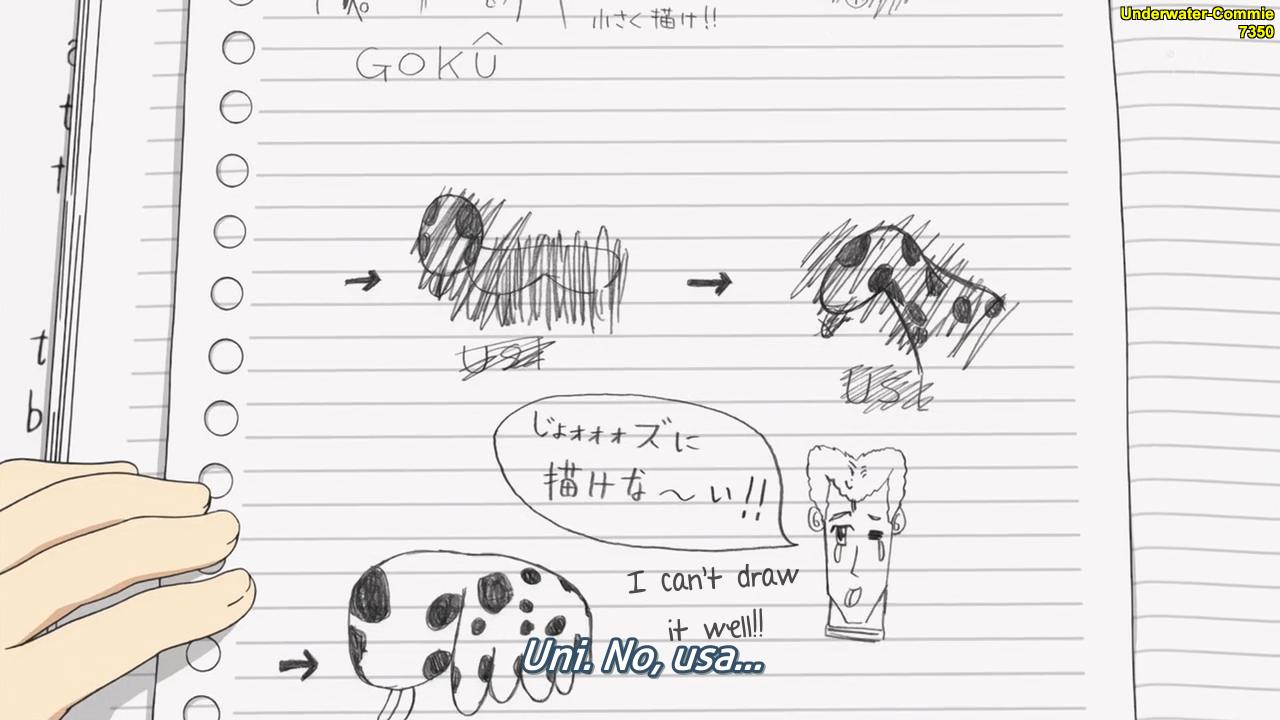 Underwater-Commie
7350
小さく描け!!
GOKÛ
t
t
t
b
USI
USI
じょォォォズに
描けな〜い!!
I can't draw
it well!!
Uni. No, usa...